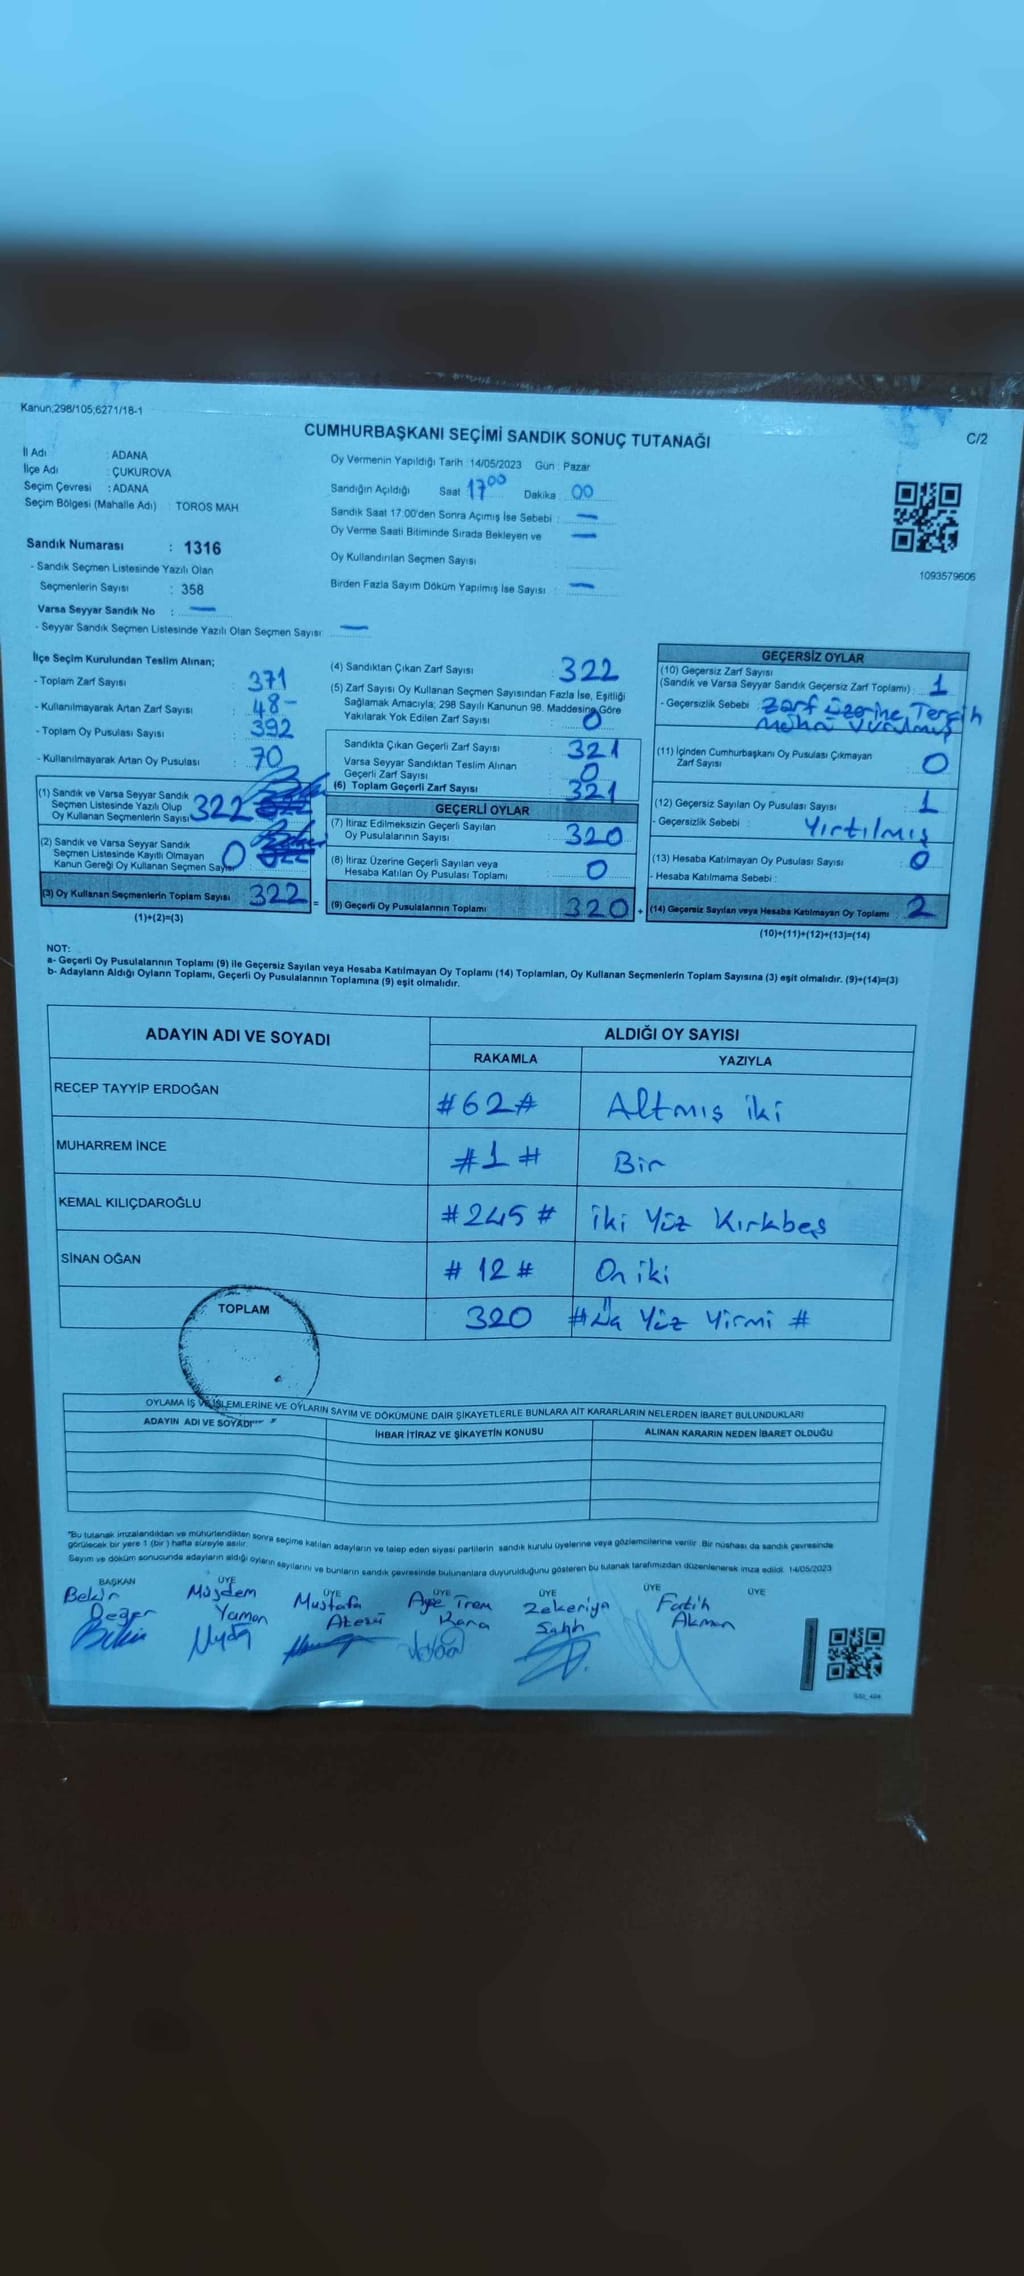 Kanun;298/105;6271/18-1
CUMHURBAŞKANI SEÇİMİ SANDIK SONUÇ TUTANAĞI
C/2
İl Adı : ADANA
İlçe Adı : ÇUKUROVA
Seçim Çevresi : ADANA
Seçim Bölgesi (Mahalle Adı) : TOROS MAH
Sandık Numarası : 1316
- Sandık Seçmen Listesinde Yazılı Olan
Seçmenlerin Sayısı : 358
Varsa Seyyar Sandık No : —
- Seyyar Sandık Seçmen Listesinde Yazılı Olan Seçmen Sayısı: —
Oy Vermenin Yapıldığı Tarih :14/05/2023 Gün : Pazar
Sandığın Açıldığı Saat 17⁰⁰ Dakika : 00
Sandık Saat 17:00'den Sonra Açmış İse Sebebi : —
Oy Verme Saati Bitiminde Sırada Bekleyen ve —
Oy Kullandırılan Seçmen Sayısı
Birden Fazla Sayım Döküm Yapılmış İse Sayısı : —
1093579606
İlçe Seçim Kurulundan Teslim Alınan;
- Toplam Zarf Sayısı : 371
- Kullanılmayarak Artan Zarf Sayısı : 48-
- Toplam Oy Pusulası Sayısı : 392
- Kullanılmayarak Artan Oy Pusulası : 70
(1) Sandık ve Varsa Seyyar Sandık
Seçmen Listesinde Yazılı Olup
Oy Kullanan Seçmenlerin Sayısı 322
(2) Sandık ve Varsa Seyyar Sandık
Seçmen Listesinde Kayıtlı Olmayan
Kanun Gereği Oy Kullanan Seçmen Sayısı 0
(3) Oy Kullanan Seçmenlerin Toplam Sayısı : 322 =
(1)+(2)=(3)
(4) Sandıktan Çıkan Zarf Sayısı : 322
(5) Zarf Sayısı Oy Kullanan Seçmen Sayısından Fazla İse, Eşitliği
Sağlamak Amacıyla; 298 Sayılı Kanunun 98. Maddesine Göre
Yakılarak Yok Edilen Zarf Sayısı : 0
Sandıkta Çıkan Geçerli Zarf Sayısı : 321
Varsa Seyyar Sandıktan Teslim Alınan
Geçerli Zarf Sayısı : 0
(6) Toplam Geçerli Zarf Sayısı : 321
GEÇERLİ OYLAR
(7) İtiraz Edilmeksizin Geçerli Sayılan
Oy Pusulalarının Sayısı : 320
(8) İtiraz Üzerine Geçerli Sayılan veya
Hesaba Katılan Oy Pusulası Toplamı : 0
(9) Geçerli Oy Pusulalarının Toplamı : 320 +
GEÇERSİZ OYLAR
(10) Geçersiz Zarf Sayısı
(Sandık ve Varsa Seyyar Sandık Geçersiz Zarf Toplamı) : 1
- Geçersizlik Sebebi : Zarf Üzerine Tercih
Mührü Vurulmuş
(11) İçinden Cumhurbaşkanı Oy Pusulası Çıkmayan
Zarf Sayısı : 0
(12) Geçersiz Sayılan Oy Pusulası Sayısı : 1
- Geçersizlik Sebebi : Yırtılmış
(13) Hesaba Katılmayan Oy Pusulası Sayısı : 0
- Hesaba Katılmama Sebebi :
(14) Geçersiz Sayılan veya Hesaba Katılmayan Oy Toplamı : 2
(10)+(11)+(12)+(13)=(14)
NOT:
a- Geçerli Oy Pusulalarının Toplamı (9) ile Geçersiz Sayılan veya Hesaba Katılmayan Oy Toplamı (14) Toplamları, Oy Kullanan Seçmenlerin Toplam Sayısına (3) eşit olmalıdır. (9)+(14)=(3)
b- Adayların Aldığı Oyların Toplamı, Geçerli Oy Pusulalarının Toplamına (9) eşit olmalıdır.
ADAYIN ADI VE SOYADI ALDIĞI OY SAYISI
RAKAMLA YAZIYLA
RECEP TAYYİP ERDOĞAN #62# Altmış iki
MUHARREM İNCE #1# Bir
KEMAL KILIÇDAROĞLU #245# iki Yüz Kırkbeş
SİNAN OĞAN #12# On iki
TOPLAM 320 # Üç Yüz Yirmi #
OYLAMA İŞ VE İŞLEMLERİNE VE OYLARIN SAYIM VE DÖKÜMÜNE DAİR ŞİKAYETLERLE BUNLARA AİT KARARLARIN NELERDEN İBARET BULUNDUKLARI
ADAYIN ADI VE SOYADI İHBAR İTİRAZ VE ŞİKAYETİN KONUSU ALINAN KARARIN NEDEN İBARET OLDUĞU
*Bu tutanak imzalandıktan ve mühürlendikten sonra seçime katılan adayların ve talep eden siyasi partilerin sandık kurulu üyelerine veya gözlemcilerine verilir. Bir nüshası da sandık çevresinde
görülecek bir yere 1 (bir) hafta süreyle asılır.
Sayım ve döküm sonucunda adayların aldığı oyların sayılarını ve bunların sandık çevresinde bulunanlara duyurulduğunu gösteren bu tutanak tarafımızdan düzenlenerek imza edildi. 14/05/2023
BAŞKAN ÜYE ÜYE ÜYE ÜYE ÜYE ÜYE
Bekir Müjdem Mustafa Ayşe İrem Zekeriya Fatih
Değer Yaman Kara Salih Akman